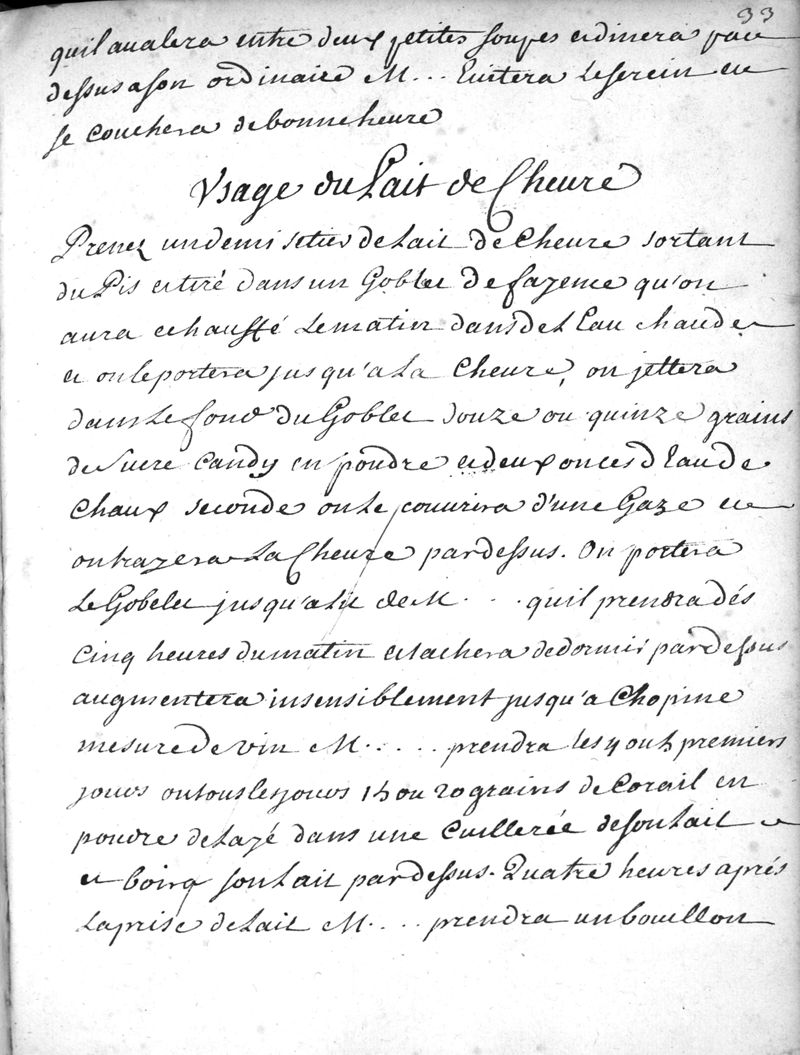 33
quil aualera entre deux petites soupes et dinera par
dessus a son ordinaire M... Euitera Le serein et
se couchera de bonne heure
Vsage du Lait de Cheure
Prenez un demi setier de Lait de Cheure sortant
du Pis et tiré dans un Goblet de fayence qu'on
aura echauffé Le matin dans de L'Eau chaude
et on le portera jusqu'a La Cheure, on jettera
dans Le fond du Goblet douze ou quinze grains
de sucre Candy en poudre et deux onces d'Eau de
Chaux seconde on Le couurira d'une Gaze et
on trazera La Cheure par dessus. On portera
Le Gobelet jusqu'a Lit de M... quil prendra dés
Cinq heures du matin et tachera de dormir par dessus
augmentera insensiblement jusqu'a Chopine
mesure de vin M..... prendra les 4 ou 5 premiers
jours ou tous les jours 15 ou 20 grains de Corail en
poudre delayé dans une Cuillerée de son Lait
et boira son Lait par dessus. Quatre heures aprés
La prise de Lait M.... prendra un bouillon